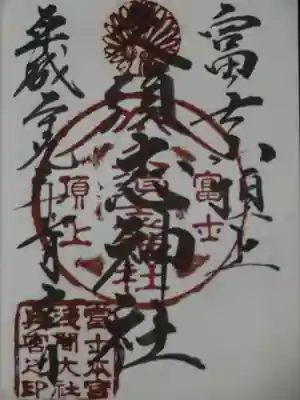 富士頂上
久須志神社
平成二九年
富士
頂上
富士本宮
浅間大社
奥宮之印